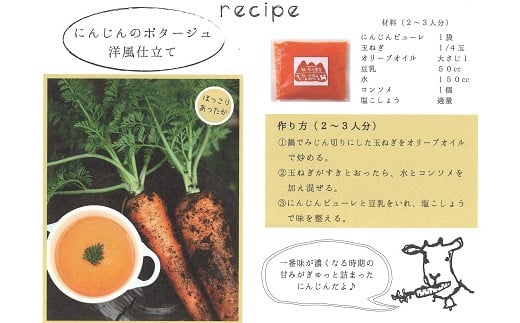 recipe
にんじんのポタージュ
洋風仕立て
ほっこり
あったか
材料(2~3人分)
にんじんピューレ 1袋
玉ねぎ 1/4玉
オリーブオイル 大さじ1
豆乳 50cc
水 150cc
コンソメ 1個
塩こしょう 適量
作り方(2~3人分)
①鍋でみじん切りにした玉ねぎをオリーブオイル
で炒める。
②玉ねぎがすきとおったら、水とコンソメを
加え混ぜる。
③にんじんピューレと豆乳をいれ、塩こしょう
で味を整える。
一番味が濃くなる時期の
甘みがぎゅっと詰まった
にんじんだよ♪